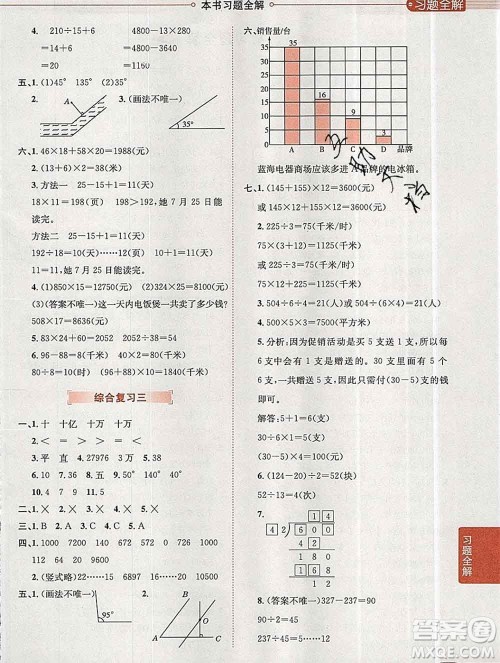 本书习题全解
习题全解
2. 210÷15+6 4800-13×280
=14+6 =4800-3640
=20 =1160
五、1. (1)45° (2)135°
2. A 3. (画法不唯一)
35°
六、1. 46×18+58×20=1988(元)
2. (13+6)×2=38(米)
3. 方法一 25-15+1=11(天)
18×11=198(页) 198>192,她 7 月 25 日能
读完。
方法二 25-15+1=11(天)
192÷18=10(天)……12(页)
10+1=11(天) 她 7 月 25 日能读完。
4. (1)324×25=8100(元) (2)324×25=8100(元)
(3)(答案不唯一)这一天内电饭煲一共卖了多少钱?
508×17=8636(元)
5. 33×2+24=90(米)
6. 96-88=8(千米)
综合复习三
一、1. 十 十亿 十万 十万
2. < = > <
3. 平 直 4. 27976 5. 3 2
6. 40 7. 5 五 8. 50° 40° 9. 150°
10. 4 9 11. 4 5
二、1. × 2. × 3. √ 4. × 5. ×
三、1. B 2. A 3. C 4. A
四、1. 1000 7200 140 7 6 0 1000
112 9 20 64 20
2. (竖式略)22……10 15190 9
五、1. (画法不唯一) 2.
95°
A B C
六、销售量/台
35
30
25
20
15
10
5
0
35
16
9
3
A B C D 品牌
蓝海电器商场应该多进 A 品牌的电冰箱。
七、1. (145+155)×12=3600(元)
或 145×12+155×12=3600(元)
2. 225÷3=75(千米/时)
75×(3+12)=1125(千米)
或 225÷3=75(千米/时)
75×12+225=1125(千米)
3. 504÷6÷4=21(千米) 或 504÷(6×4)=21(千米)
4. 300×5×5=7500(平方米)
5. 分析:因为促销活动是买 5 支送 1 支,所以有
1 支是赠送的。因此每 5+1=6(支)中就有一支
是赠送的,60 里面有几个 6,就有几支是赠送
的,60 支减去赠送的支数就是实际需要买的
支数。
解答:5+1=6(支)
60÷6=10(支)
60-10=50(支)
6. (124-20)÷2=52(块)
52÷10=5(块)……2(块)
7.
8. (答案不唯一)327-237=90
317-227=90
90÷2=45
237÷45=5……12
习题全解
答案圈
MXQE.COM